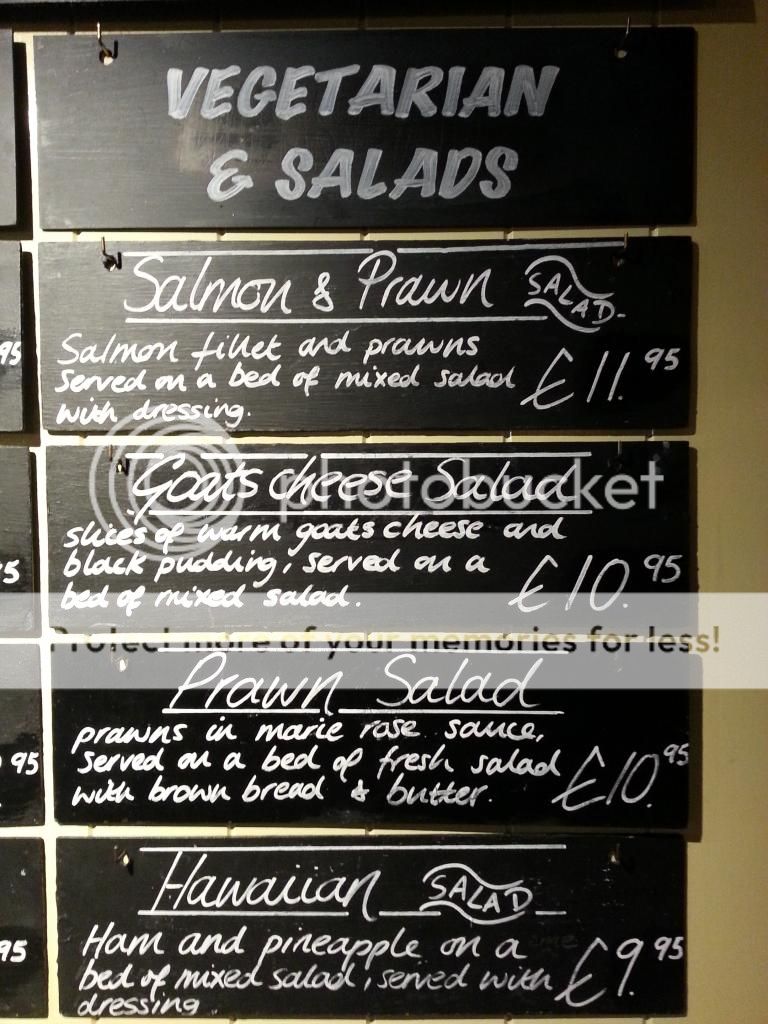 VEGETARIAN
& SALADS
Salmon & Prawn SALAD
Salmon fillet and prawns
served on a bed of mixed salad
with dressing.
£11.95
95
Goats cheese Salad
slices of warm goats cheese and
black pudding, served on a
bed of mixed salad.
£10.95
5
photobucket
Protect more of your memories for less!
Prawn Salad
prawns in marie rose sauce,
served on a bed of fresh salad
with brown bread & butter.
£10.95
95
Hawaiian SALAD
Ham and pineapple on a
bed of mixed salad, served with
dressing
£9.95
95